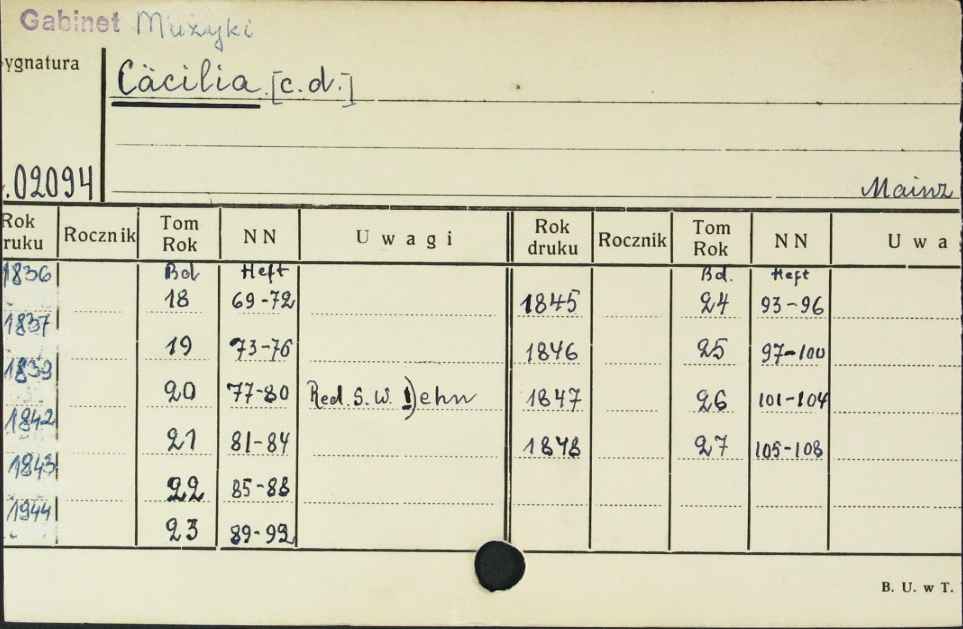 Gabinet Muzyki
ygnatura
Cäcilia [c.d.]
.02094
Mainz
Rok ruku Rocznik Tom Rok NN Uwagi Rok druku Rocznik Tom Rok NN Uwa
1836 Bd Heft Bd. Heft
18 69-72 1845 24 93-96
1837 19 73-76 1846 25 97-100
1839 20 77-80 Red. S. W. Dehn 1847 26 101-104
1842 21 81-84 1848 27 105-108
1843 22 85-88
1944 23 89-92
B. U. w T.